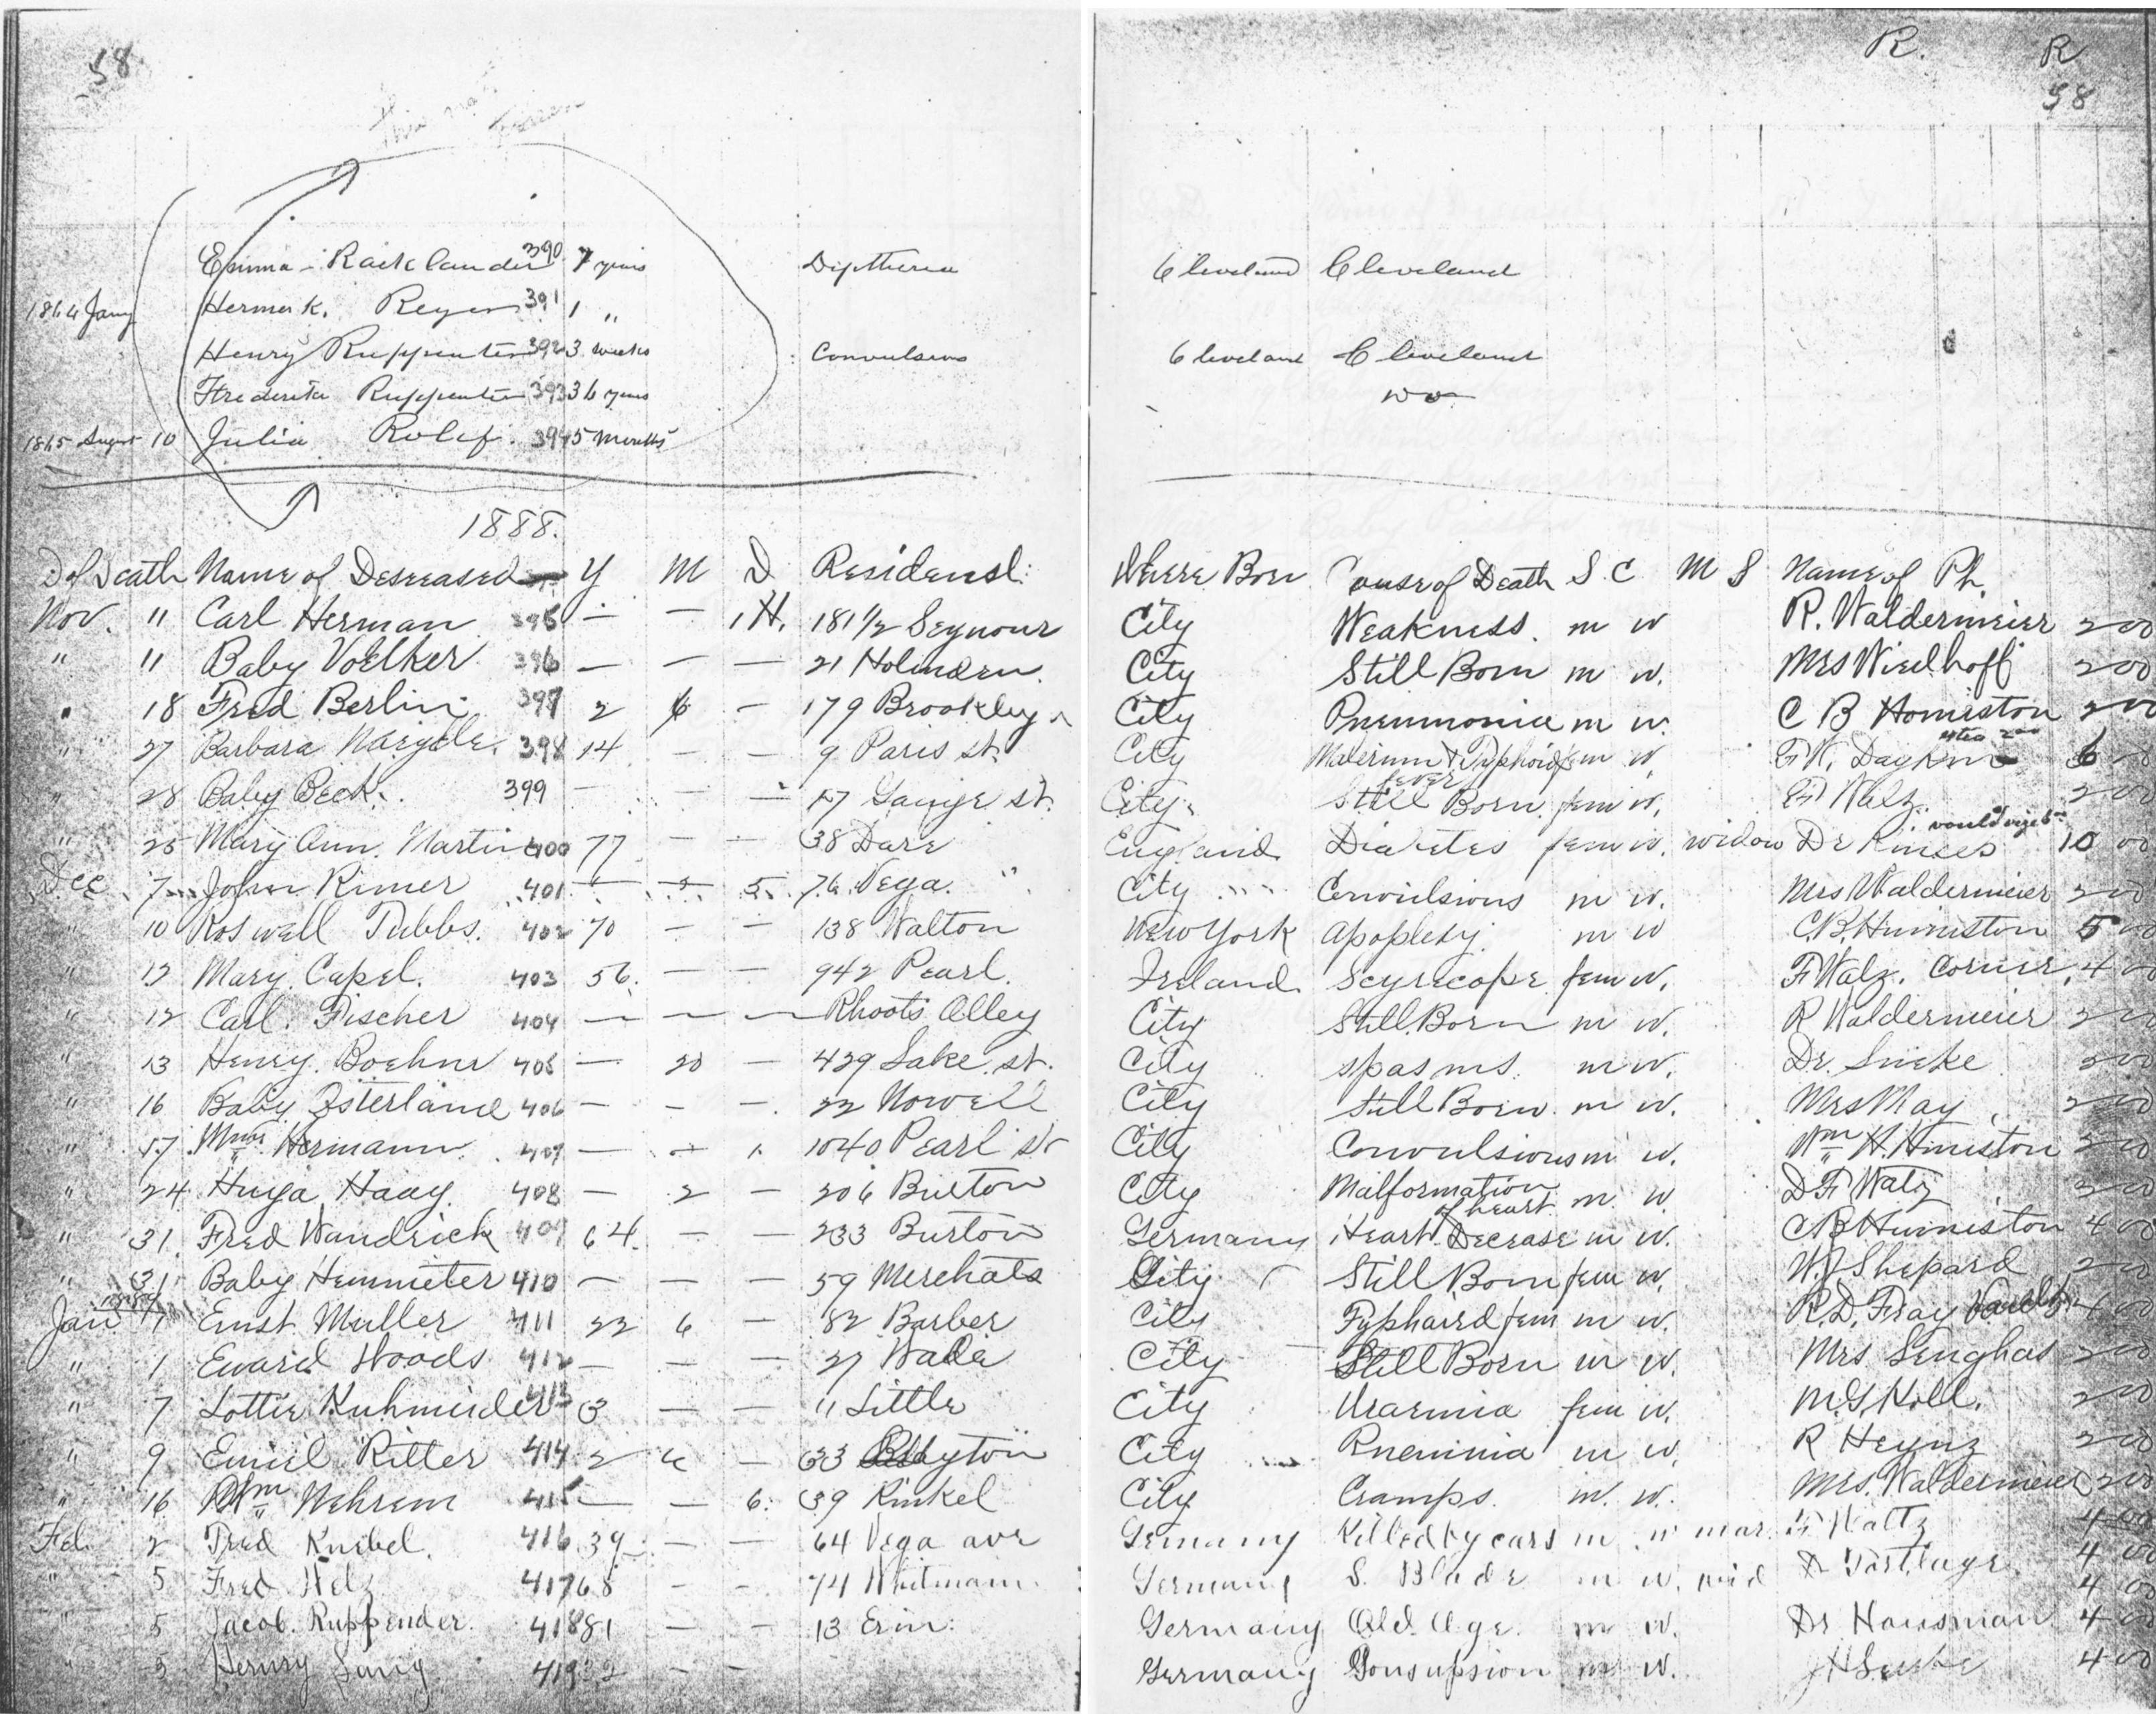 58
R. R
58
This not
Emma 390 7 years Diptheria Cleveland Cleveland
1864 Jany Herman K. Reyer 391 1 "
Henry Ruppenter 392 3 weeks Convulsions Cleveland Cleveland
Fredericka Ruppenter 393 36 years Do
1865 August 10 Julia Rolef. 394 5 months
1888.
D of Death Name of Deseased Y M D Residensl: Where Born Cause of Death S. C M S Name of Ph.
Nov. " Carl Herman 395 — — 1 H. 181 1/2 Seymour City Weakness. m w R. Waldermeier 2 00
" " Baby Voelker 396 — — — 21 Holmden. City Still Born m w. Mrs Wielhoff 2 00
" 18 Fred Berlin 397 2 6 — 179 Brooklyn City Pneumonia m w. C B Homiston 2 00
" 27 Barbara 398 14 — — 9 Paris st. City & Typhoid fem w 6 00
fever
" 28 Baby Beck. 399 — — — 17 st. City. Still Born. fem w. F Walz. 2 00
" 25 Mary Ann. Martin 400 77 — — 38 Dare England Diabetes fem w. widow Dr 10 00
Dec 7 John Rimer 401 — — 5. 76. Vega. " City Convulsions m w. Mrs Waldermeier 2 00
" 10 Roswell Tubbs. 402 70 — — 138 Walton New York apoplexy. m w C.B. Humiston 5 00
" 12 Mary. Capel. 403 56. — — 942 Pearl. Ireland fem w. F Walz. Corner. 4 00
" 12 Carl. Fischer 404 — — — Rhoots Alley City Still. Born m w. R Waldermeier 2 00
" 13 Henry. Boehne 405 — 20 — 429 Lake st. City spasms. m w. Dr. Lueke 2 00
" 16 Baby Osterland 406 — — — 22 Nowell City Still Born. m w. Mrs May 2 00
" 17 Wm. Hermann 407 — — 1. 1040 Pearl st City Convulsions m w. Wm H. Humiston 2 00
" 24 Huga Haag 408 — 2 — 206 Burton City Malformation m. w. D F Walz 2 00
of heart
" 31. Fred Wandrick 409 64. — — 233 Burton Germany Heart Decease m w. C B Humiston 4 00
" 31 Baby Hemmeter 410 — — — 59 Merchats City Still Born fem w. W J Shepard 2 00
1889
Jan 1 Ernst Muller 411 22 6 — 82 Barber City Typhaird fem m w. R. D. Fray Vault 4 00
" 1 Eward Woods 412 — — — 27 Wade City Still Born m w. Mrs Senghas 2 00
" 7 Lottie Kuhmerder 413 3 — — 11 Little City Uraemia fem w. M. G Hill. 2 00
" 9 Emiel Ritter 414 2 — 33 City Pneminia m w. R Heynz 2 00
" 16 Wm Nehrem 415 — — 6. 39 Kinkel City Cramps. m. w. Mrs. Waldermeier 2 00
Feb. 2 Fred Knebel. 416 39 — — 64 Vega ave Germany Killed by cars m w mar. F Waltz 4 00
" 5 Fred Welz 417 68 — — 74 Whitman. Germany S. Blade m w. wid 4 00
" 5 Jacob. Ruppender. 418 81 — — 13 Erin. Germany Old. Age. m w. Dr Housman 4 00
" 5 Henry 419 32 — — Germany Consupsion m w. 4 00